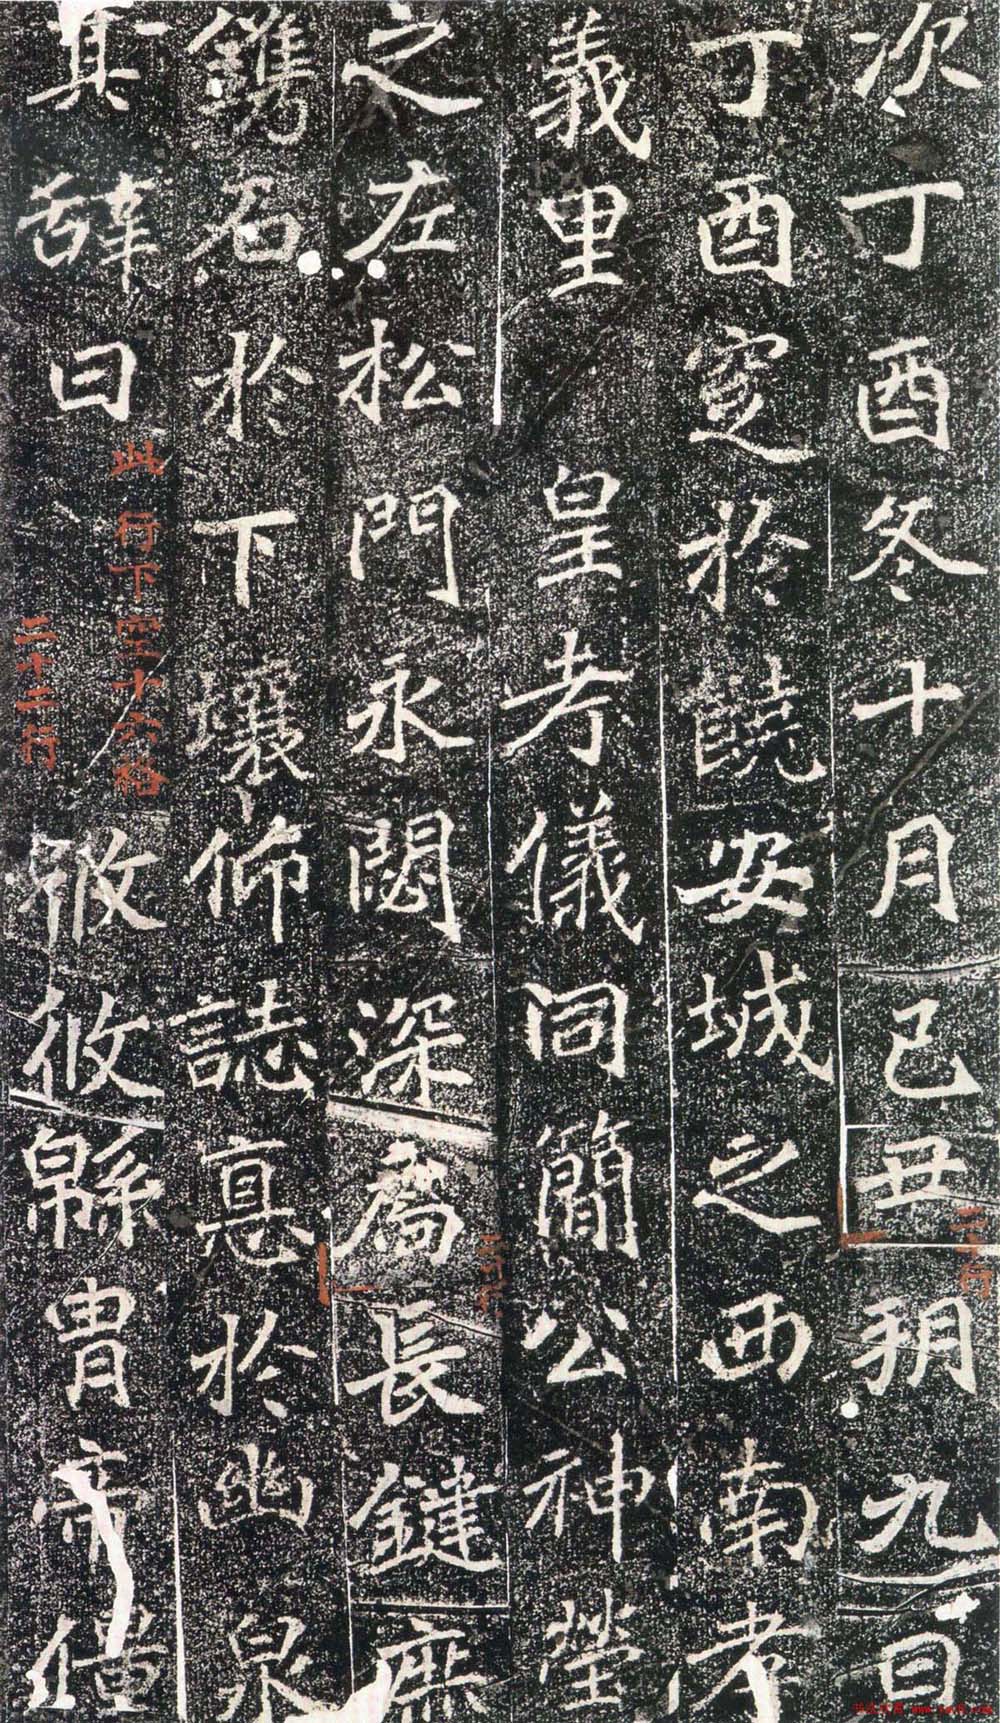 次丁酉冬十月己丑朔九日
二十行
丁酉窆於饒安城之西南孝
義里 皇考儀同簡公神塋
之左松門永閟深扃長鍵庶
鐫石於下壤仰誌惪於幽泉
其辭曰 攸攸緜胄帝
此行下空十六格
二十二行